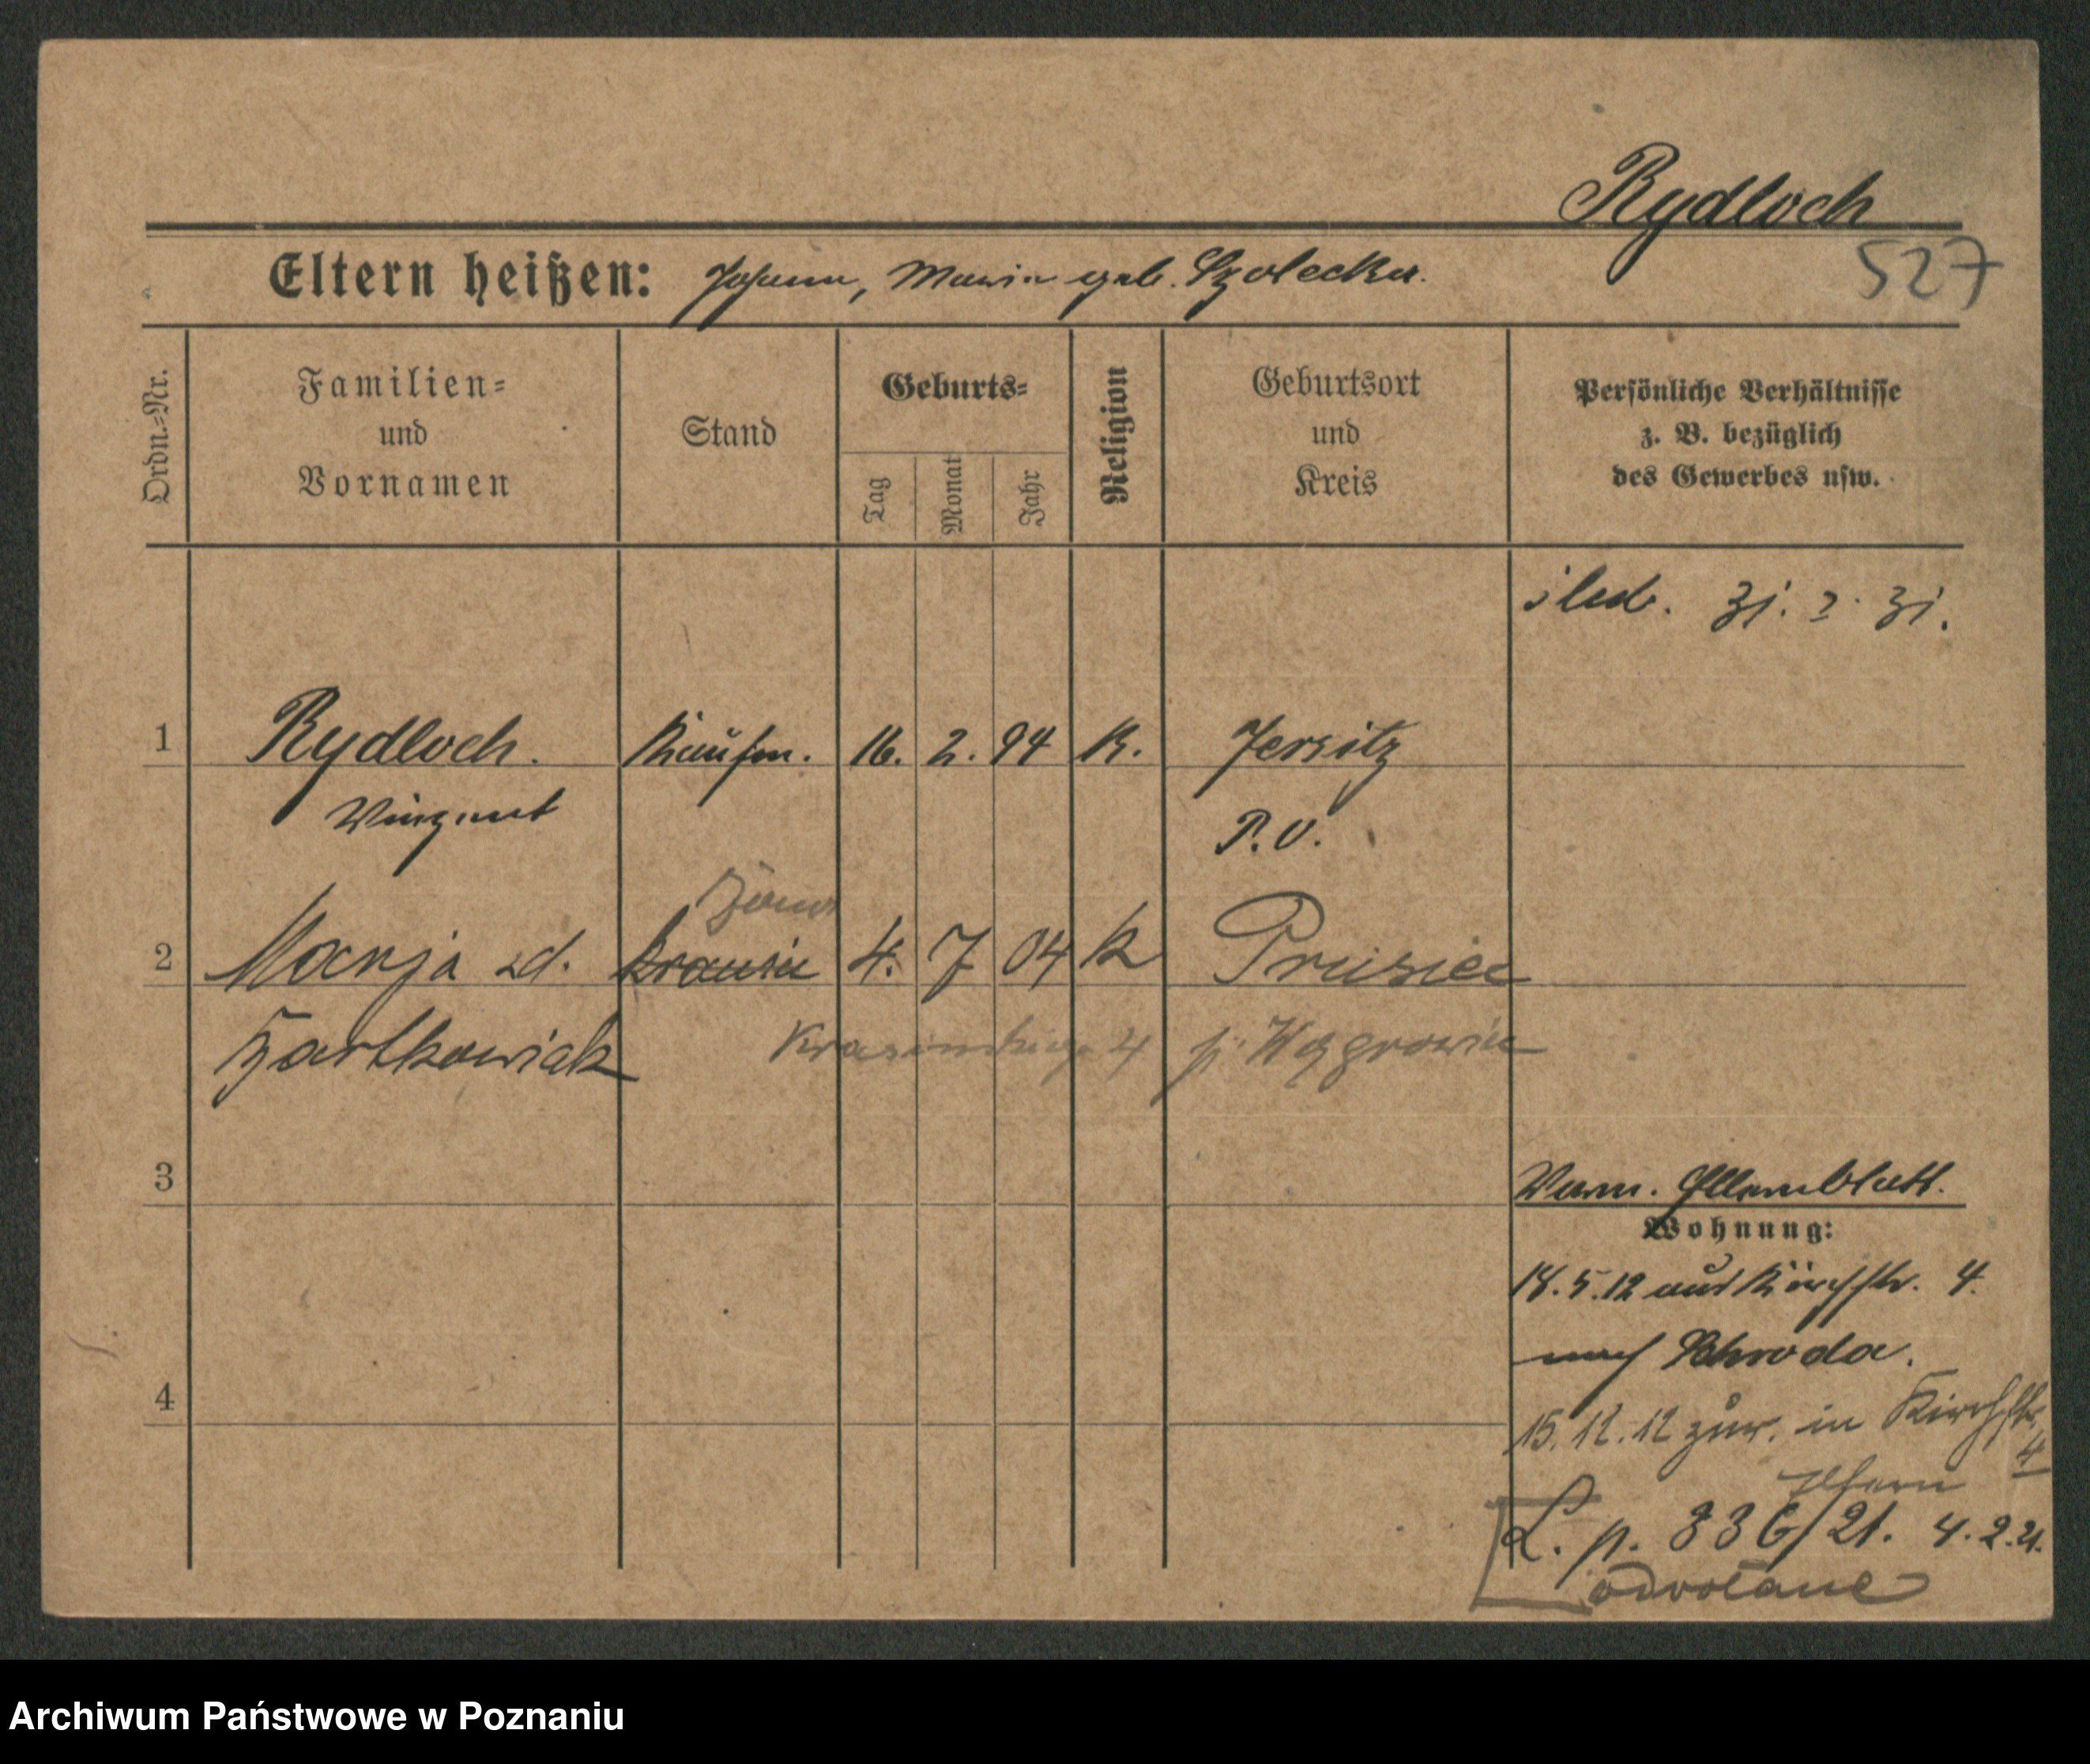 Rydloch
527
Eltern heißen: Johann, Maria geb. Szolecka.
Ordn.=Nr.
Familien=
und
Vornamen
Stand
Geburts=
Tag
Monat
Jahr
Religion
Geburtsort
und
Kreis
Persönliche Verhältnisse
z. B. bezüglich
des Gewerbes usw.
31. 2. 31.
1 Rydloch. Kaufm. 16. 2. 94 K. Jersitz
Vinzent P. O.
żona
2 Marja zd. 4. 7 04 k Prusiec
Hartkowiak Krasińskiego 4 p. Wągrowiec
3
Verm. Elternblatt.
Wohnung:
18.5.12 aus Kirchstr. 4.
nach Schroda.
4
15.12.12 zur. in Kirchstr.
4
Eltern
L. p. 336/21. 4.2.21.
odwołane
Archiwum Państwowe w Poznaniu